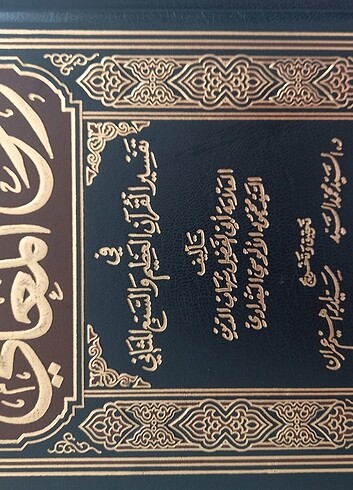 روح المعاني
في
تفسير القرآن العظيم والسبع المثاني
تأليف
العلامة أبي الفضل شهاب الدين
السيد محمود الألوسي البغدادي
تحقيق وتخريج
د. السيد محمد السيد
سيد إبراهيم عمران